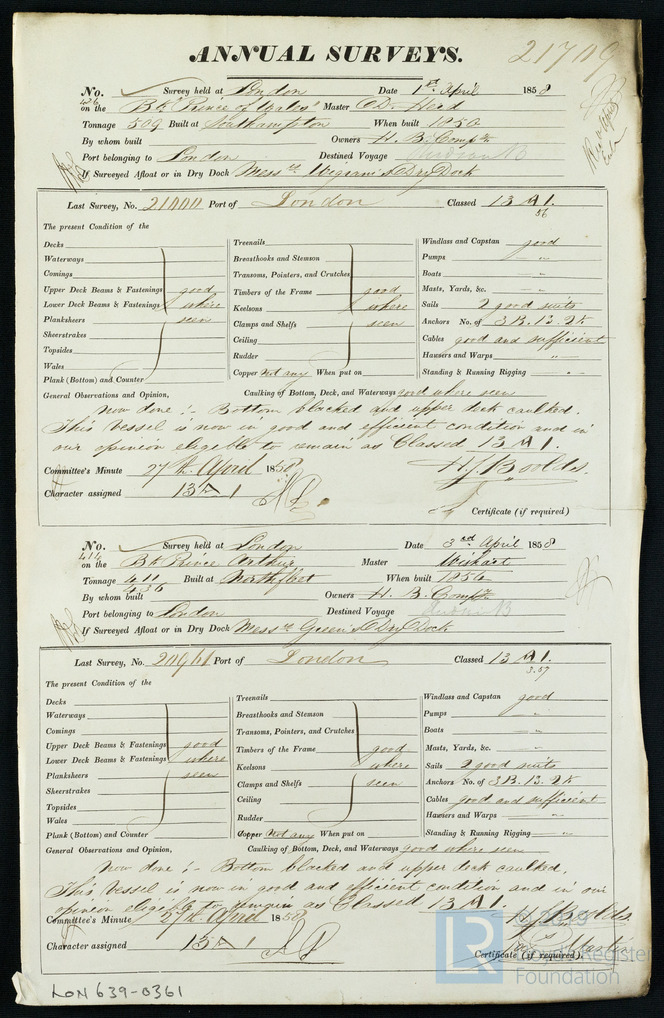 ANNUAL SURVEYS. 21709
No. Survey held at London Date 1st April 1858
426 on the Bk "Prince of Wales" Master D. Herd
Tonnage 509 Built at Southampton When built 1850
By whom built Owners H. B. Compy
Port belonging to London Destined Voyage Hudson B
If Surveyed Afloat or in Dry Dock Messrs Wigram's Dry Dock
Last Survey, No. Port of London Classed 13 A 1.
56
The present Condition of the
Decks Treenails Windlass and Capstan good
Waterways Breasthooks and Stemson Pumps "
Comings Transoms, Pointers, and Crutches Boats "
Upper Deck Beams & Fastenings good Timbers of the Frame good Masts, Yards, &c. "
Lower Deck Beams & Fastenings where Keelsons where Sails 2 good suits
Planksheers seen Clamps and Shelfs seen Anchors No. of 3 B. 1 S. 2 K
Sheerstrakes Ceiling Cables good and sufficient
Topsides Rudder Hawsers and Warps "
Wales Copper Not any When put on Standing & Running Rigging "
Plank (Bottom) and Counter
General Observations and Opinion, Caulking of Bottom, Deck, and Waterways good where seen
Now done :- Bottom blacked and upper deck caulked.
This Vessel is now in good and efficient condition and in
our opinion eligible to remain as Classed 13 A 1.
Committee's Minute 27th April 1858
Character assigned 13 A 1
Certificate (if required)
No. Survey held at London Date 3rd April 1858
414 on the Bk Prince Arthur Master Wishart
Tonnage 411 Built at Northfleet When built 1854
436
By whom built Owners H. B. Compy
Port belonging to London Destined Voyage Hudson B
If Surveyed Afloat or in Dry Dock Messrs Green's Dry Dock
Last Survey, No. Port of London Classed 13 A 1.
3.57
The present Condition of the
Decks Treenails Windlass and Capstan good
Waterways Breasthooks and Stemson Pumps "
Comings Transoms, Pointers, and Crutches Boats "
Upper Deck Beams & Fastenings good Timbers of the Frame good Masts, Yards, &c. "
Lower Deck Beams & Fastenings where Keelsons where Sails 2 good suits
Planksheers seen Clamps and Shelfs seen Anchors No. of 3 B. 1 S. 2 K
Sheerstrakes Ceiling Cables good and sufficient
Topsides Rudder Hawsers and Warps "
Wales Copper Not any When put on Standing & Running Rigging "
Plank (Bottom) and Counter
General Observations and Opinion, Caulking of Bottom, Deck, and Waterways good where seen
Now done :- Bottom blacked and upper deck caulked.
This Vessel is now in good and efficient condition and in our
opinion eligible to remain as Classed 13 A 1.
Committee's Minute 27th April 1858
Character assigned 13 A 1
Martin
Certificate (if required).
LR © 2019
Lloyd's Register
Foundation
LON 639-0361